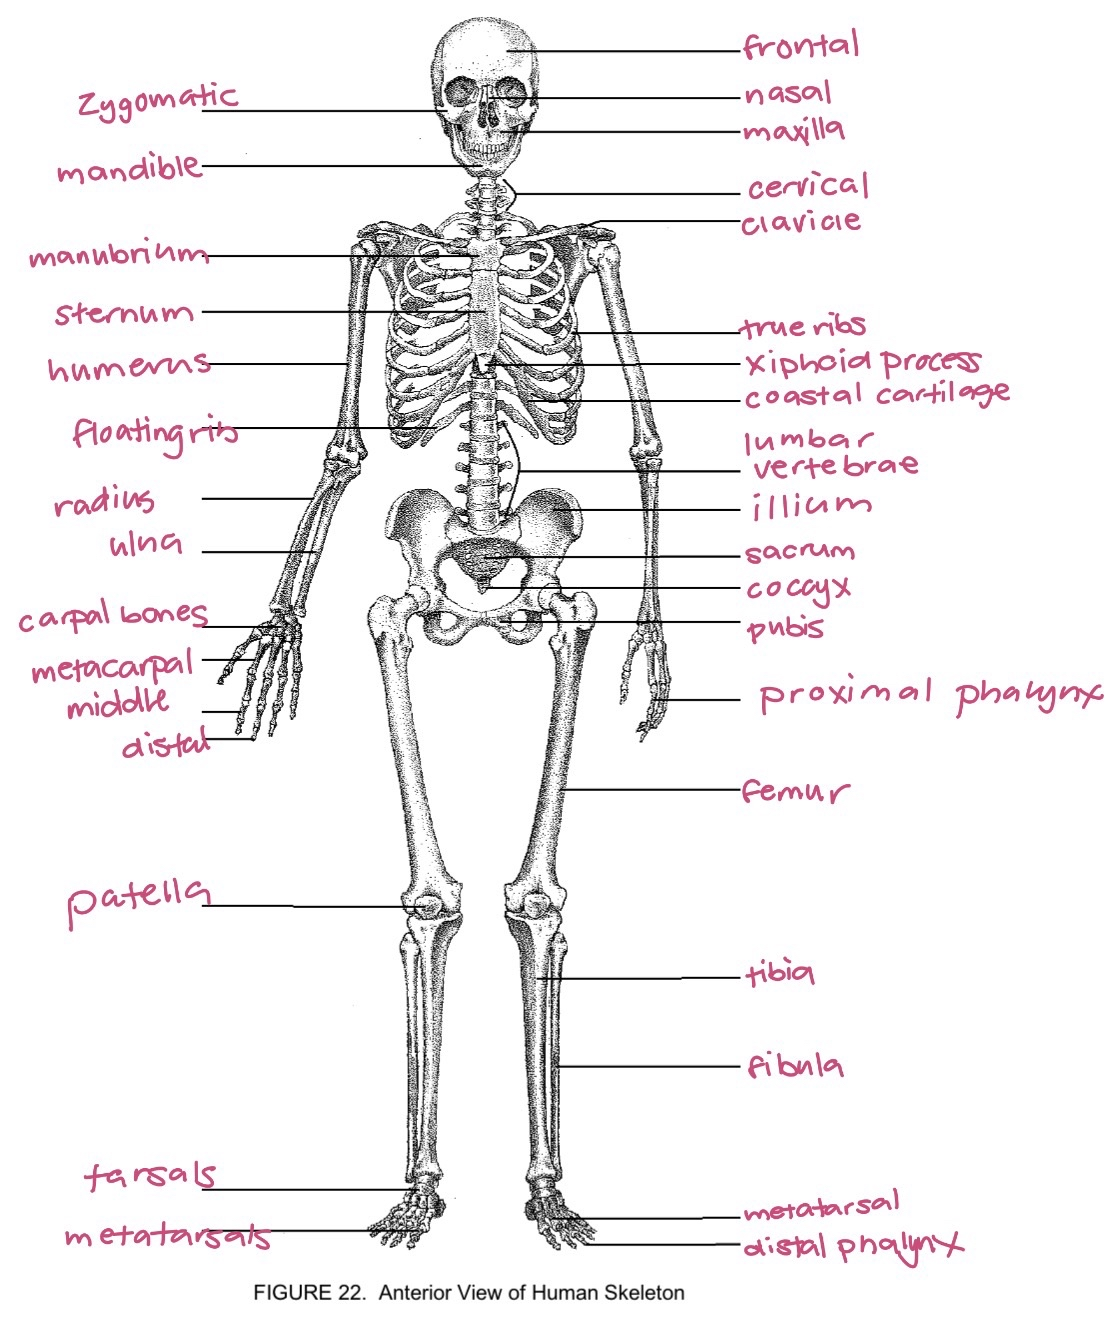 frontal
Zygomatic
nasal
maxilla
mandible
cervical
clavicle
manubrium
sternum
true ribs
humerus
xiphoid process
coastal cartilage
floating rib
lumbar
vertebrae
radius
illium
ulna
sacrum
coccyx
carpal bones
pubis
metacarpal
middle
proximal phalynx
distal
femur
patella
tibia
fibula
tarsals
metatarsal
metatarsals
distal phalynx
FIGURE 22. Anterior View of Human Skeleton